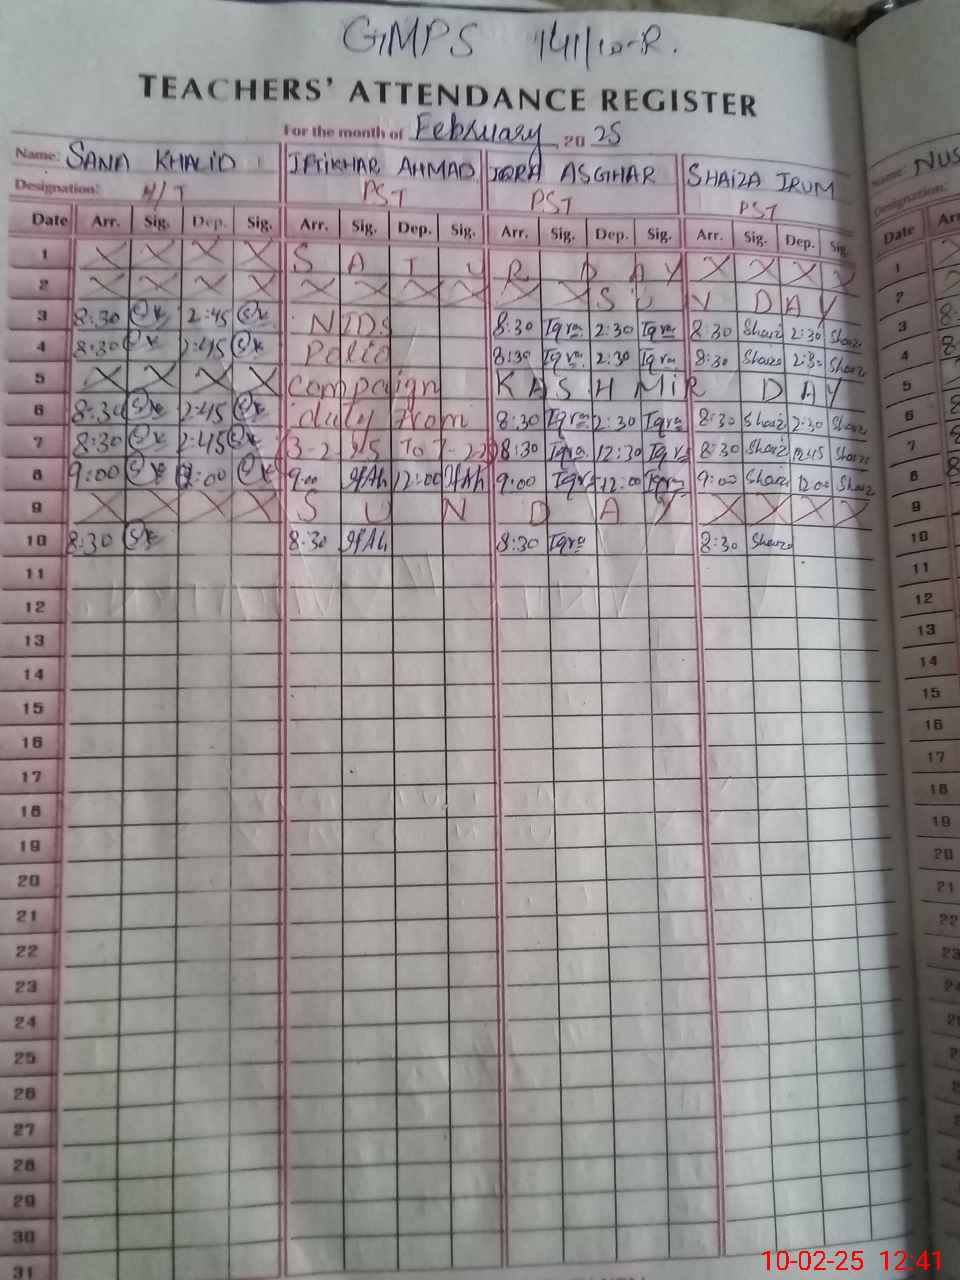 GMPS 141/10-R.
TEACHERS' ATTENDANCE REGISTER
For the month of February 2025
Name: SANA KHALID IFTIKHAR AHMAD IQRA ASGHAR SHAIZA IRUM Name: NUS
Designation: H/T PST PST PST Designation:
Date Arr. Sig. Dep. Sig. Arr. Sig. Dep. Sig. Arr. Sig. Dep. Sig. Arr. Sig. Dep. Sig. Date Arr
1 X X X X S A T U R D A Y X X X X 1
2 X X X X X X X X X X S U N D A Y 2
3 8:30 2:45 NIDs 8:30 Iqra 2:30 Iqra 8:30 Shaiza 2:30 Shaiza 3
4 8:30 2:45 Polio 8:30 Iqra 2:30 Iqra 8:30 Shaiza 2:30 Shaiza 4
5 X X X X Compaign KASHMIR DAY 5
6 8:30 2:45 duty from 8:30 Iqra 2:30 Iqra 8:30 Shaiz 2:30 Shaiz 6
7 8:30 2:45 8:30 Iqra 12:30 Iqra 8:30 Shaiz 12:45 Shaiz 7
8 9:00 12:00 9:00 IfAh 12:00 IfAh 9:00 Iqra 12:00 Iqra 9:00 Shaiz 12:00 Shaiz 8
9 X X X X S U N D A Y X X X X 9
10 8:30 8:30 IfAh 8:30 Iqra 8:30 Shaiza 10
11 11
12 12
13 13
14 14
15 15
16 16
17 17
18 18
19 19
20 20
21 21
22 22
23 23
24 24
25
26
27
28
29
30
31
10-02-25 12:41